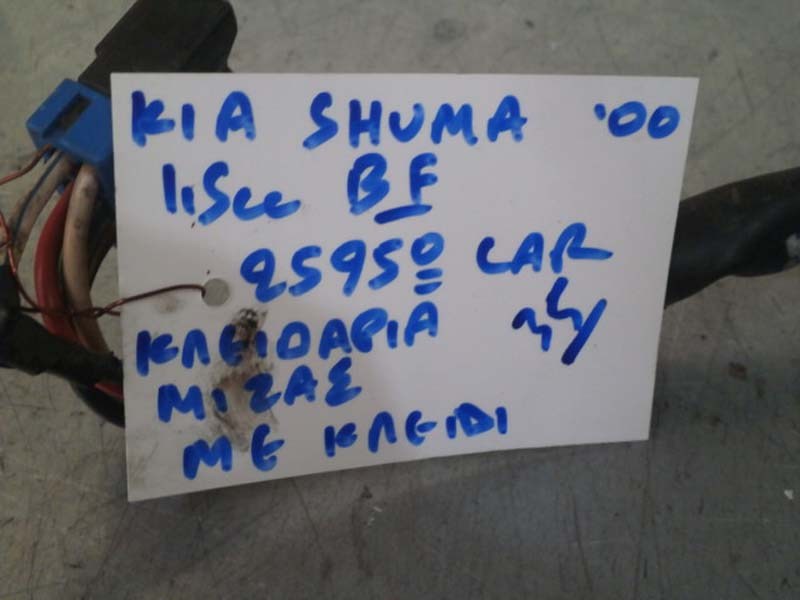 KIA SHUMA '00
1,5cc BF
25950 CAR
ΚΛΕΙΔΑΡΙΑ
ΜΙΖΑΣ
ΜΕ ΚΛΕΙΔΙ